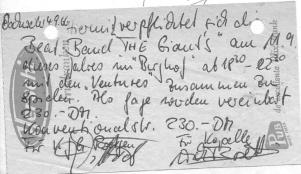 hiermit verpflichtet sich die
Beat Band "THE Giants" am 10.9.
dieses Jahres im "Burghof" ab 18⁰⁰-22⁰⁰
mit den "Ventures" zusammen zu
spielen. Als Gage werden vereinbart
230.-DM.
Konventionalstr. 230.-DM
Für Für Kapelle